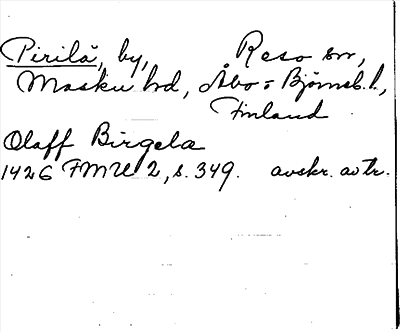 Pirilä, by, Reso sn,
Masku hd, Åbo-Björneb. l.,
Finland
Olaff Birgela
1426 FMU 2, s. 349. avskr. avtr.